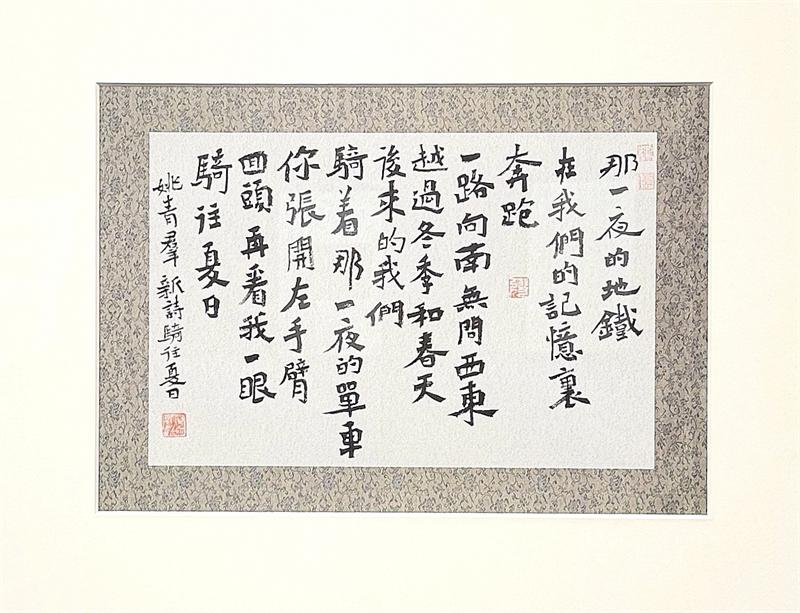 那一夜的地鐵
在我們的記憶裏
奔跑
一路向南無問西東
越過冬季和春天
後來的我們
騎着那一夜的單車
你張開左手臂
回頭再看我一眼
騎往夏日
姚青羣新詩騎往夏日